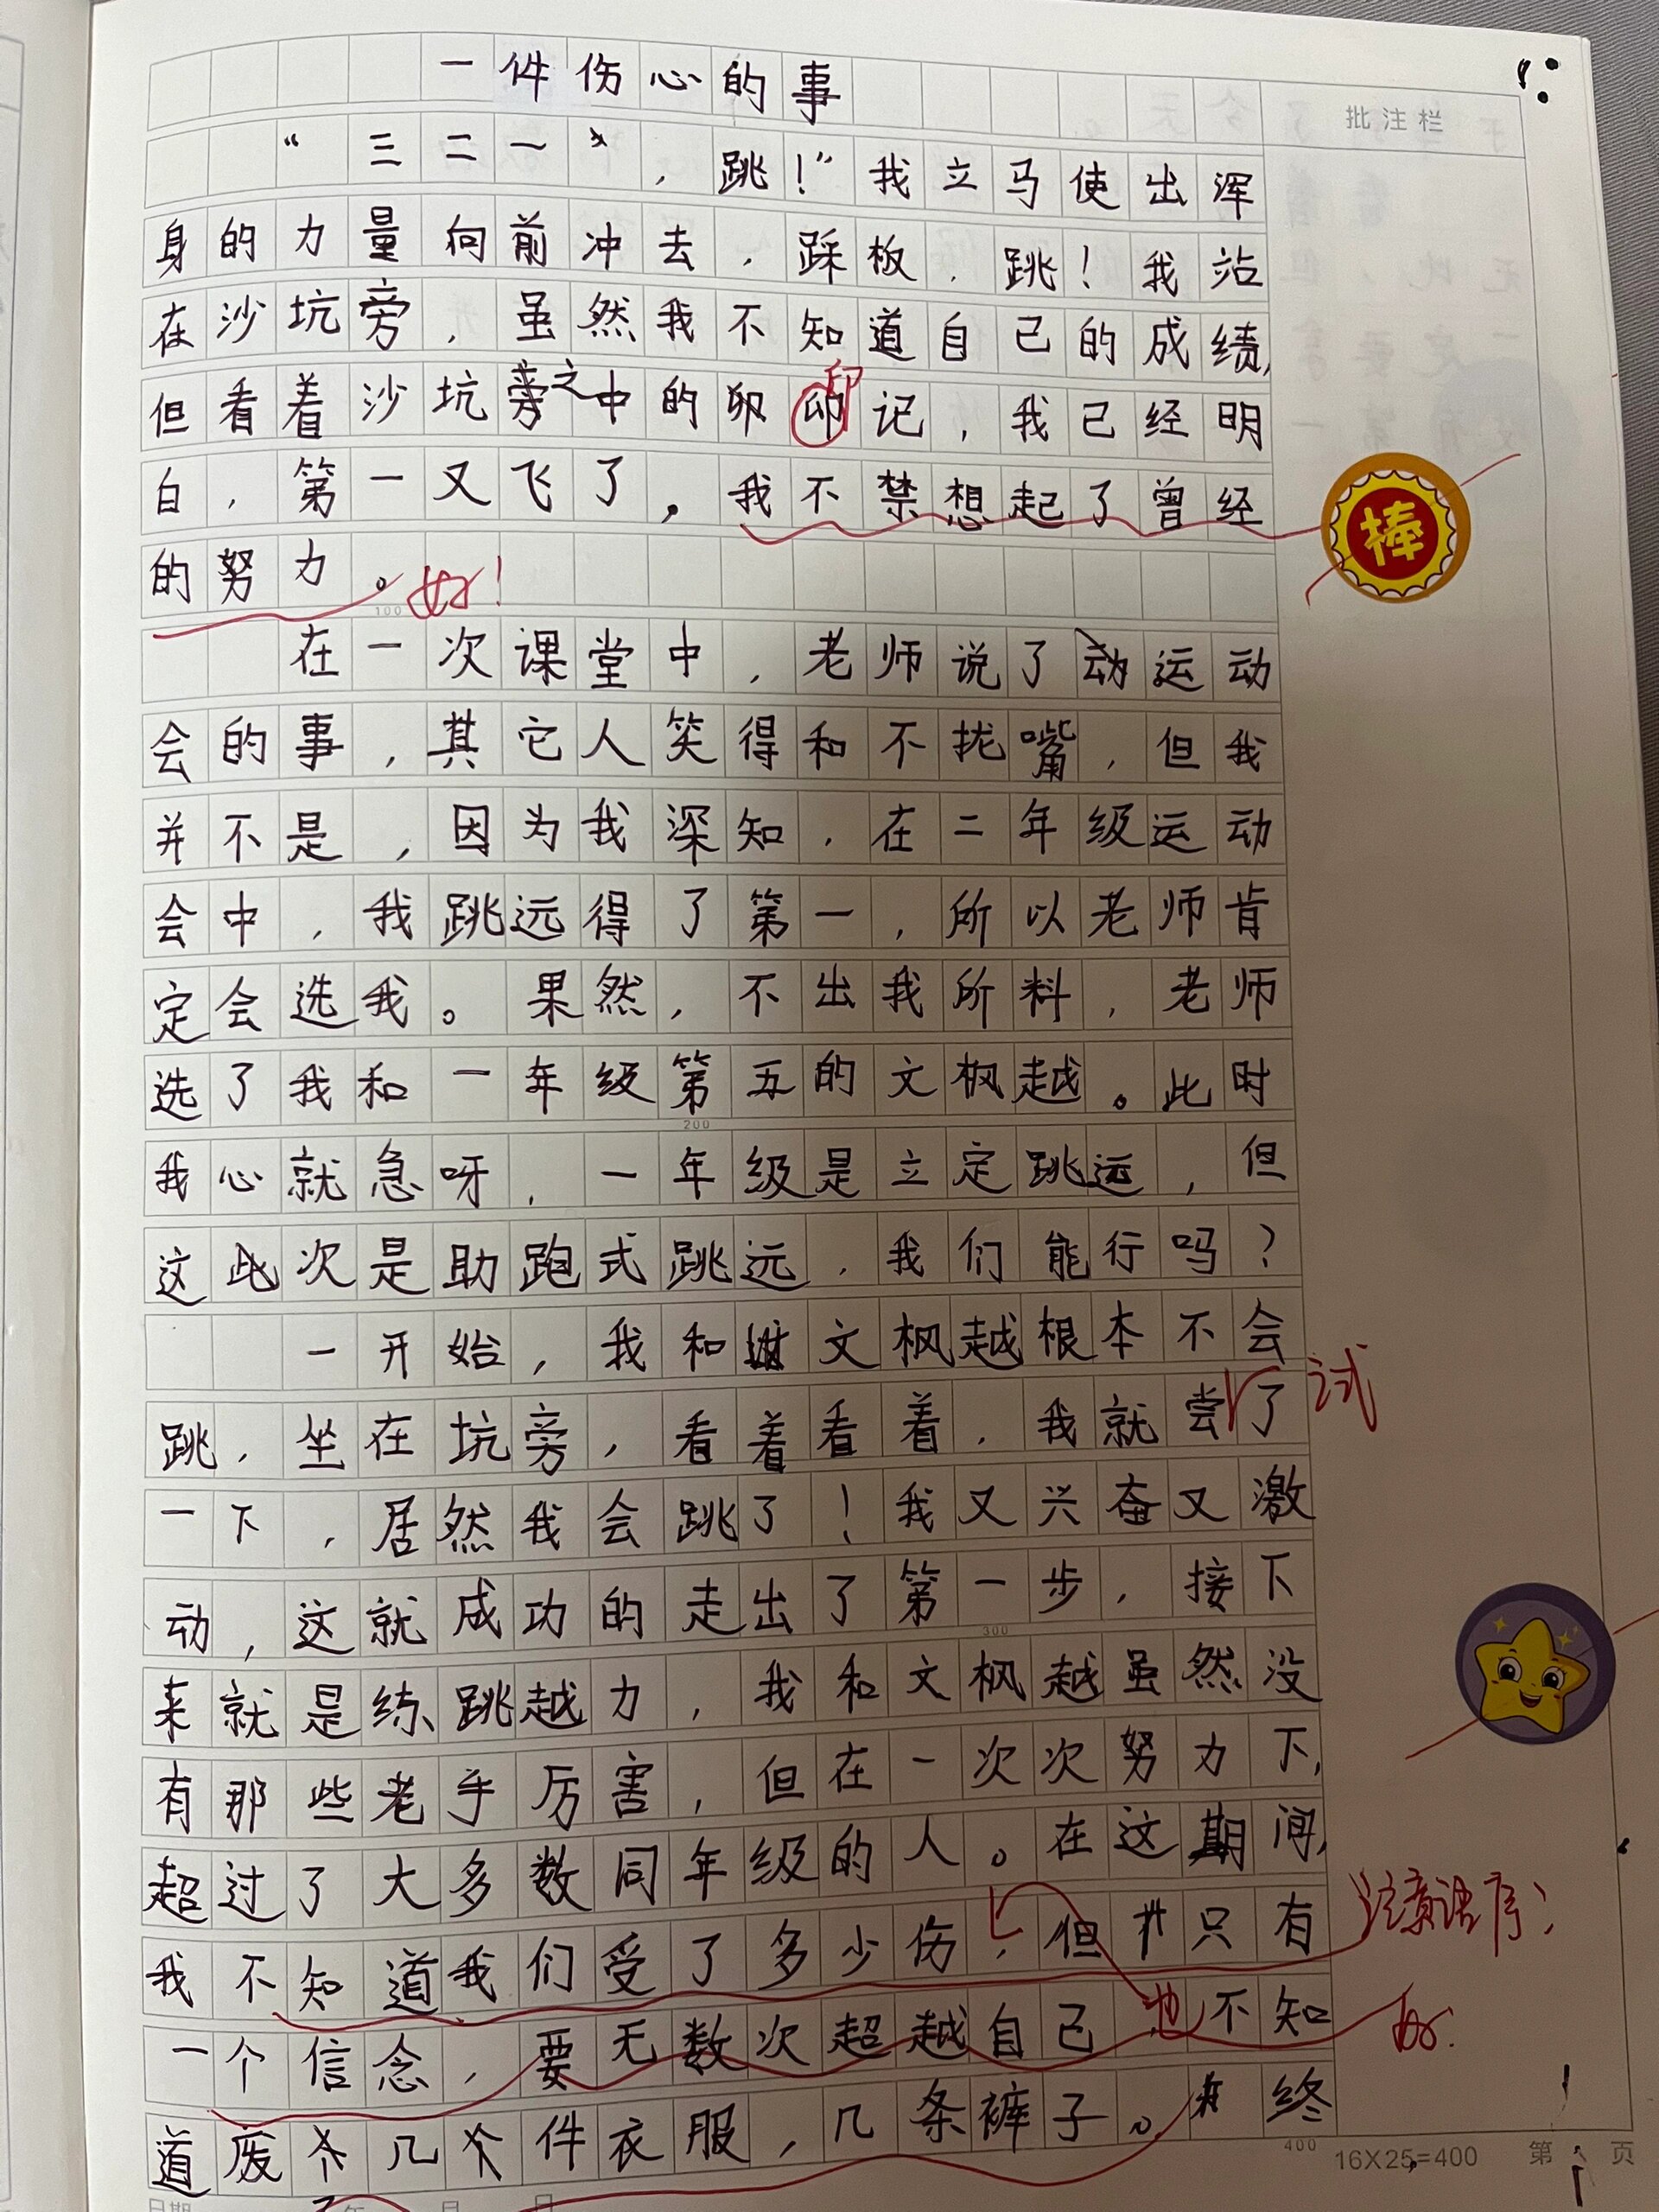 一件伤心的事
批注栏
“三二一”，跳！”我立马使出浑
身的力量向前冲去，踩板，跳！我站
在沙坑旁，虽然我不知道自己的成绩，
但看着沙坑旁之中的卯印记，我已经明
印
白，第一又飞了，我不禁想起了曾经
棒
的努力。好！
100
在一次课堂中，老师说了动运动
会的事，其它人笑得和不拢嘴，但我
并不是，因为我深知，在二年级运动
会中，我跳远得了第一，所以老师肯
定会选我。果然，不出我所料，老师
选了我和一年级第五的文枫越。此时
200
我心就急呀，一年级是立定跳远，但
这此次是助跑式跳远，我们能行吗？
一开始，我和文枫越根本不会
跳，坐在坑旁，看着看着，我就尝了
试
一下，居然我会跳了！我又兴奋又激
动，这就成功的走出了第一步，接下
300
来就是练跳越力，我和文枫越虽然没
有那些老手厉害，但在一次次努力下，
超过了大多数同年级的人。在这期间，
我不知道我们受了多少伤，但只有
注意语序！
一个信念，要无数次超越自己也不知
好.
道废个几个件衣服，几条裤子。终
400
16X25=400 第 页
日期 年 月 日